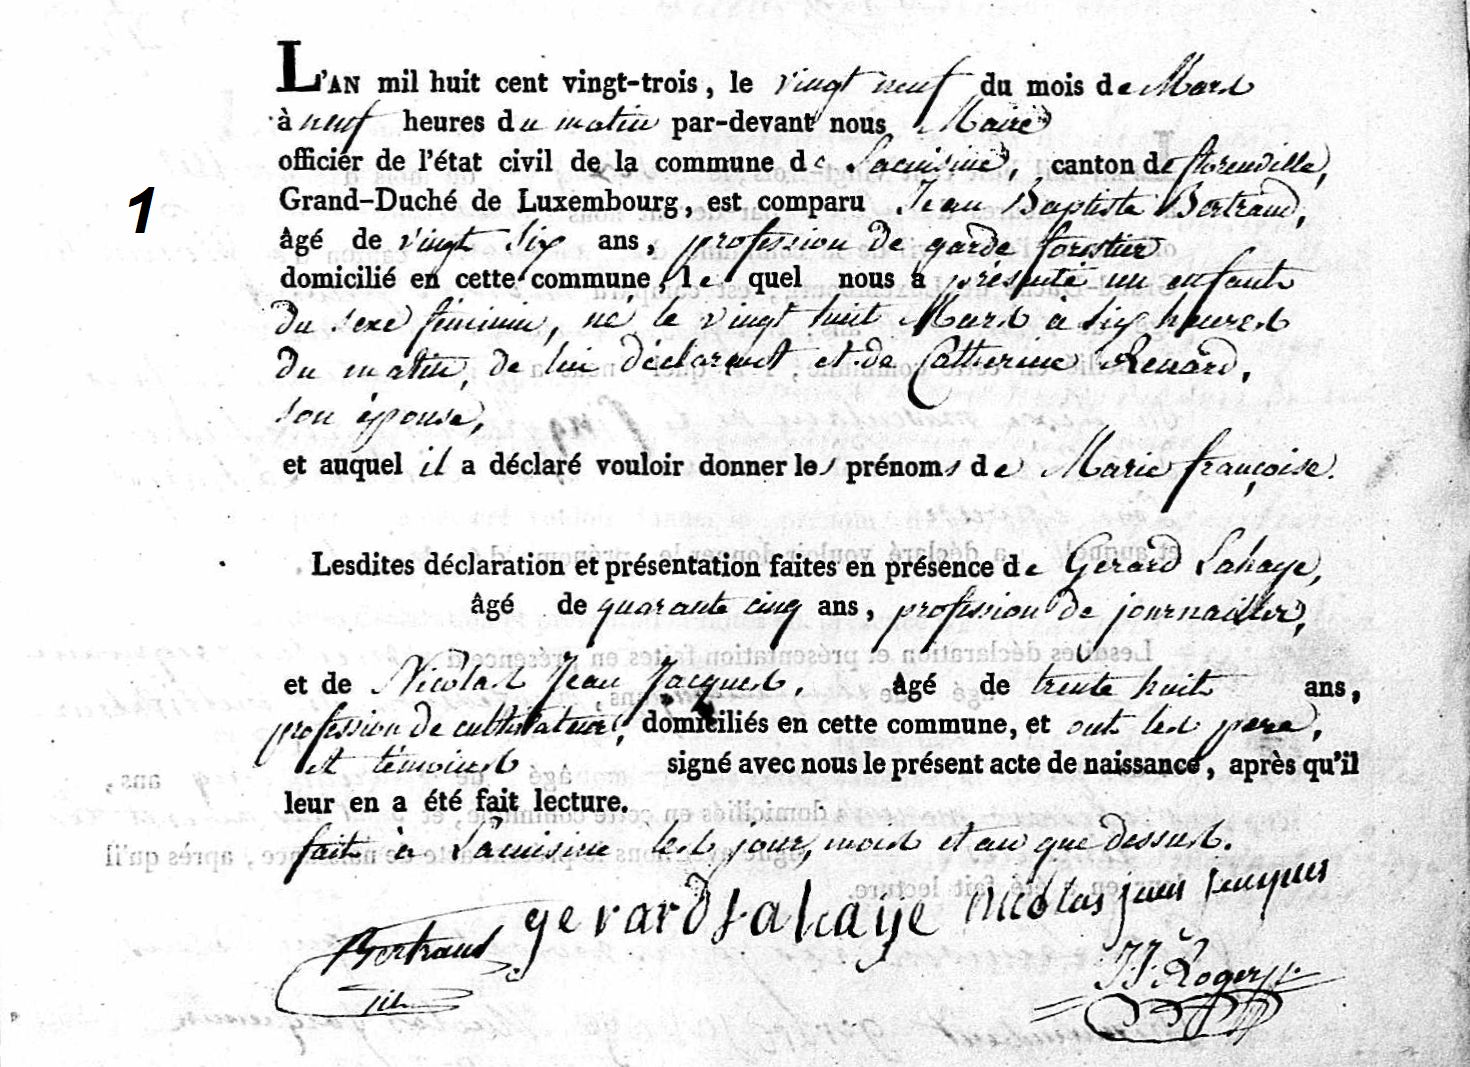 L'AN mil huit cent vingt-trois, le vingt neuf du mois de Mars
à neuf heures du matin par-devant nous Maire
officier de l'état civil de la commune de Lacuisine, canton de florenville,
1
Grand-Duché de Luxembourg, est comparu Jean Baptiste Bertrand,
âgé de vingt six ans, profession de garde forestier
domicilié en cette commune, le quel nous a présenté un enfant
du sexe féminin, né le vingt huit Mars a six heures
du matin, de lui déclarant et de Catherine Renard,
son épouse,
et auquel il a déclaré vouloir donner les prénoms de Marie françoise.
Lesdites déclaration et présentation faites en présence de Gerard Lahaye,
âgé de quarante cinq ans, profession de journailler,
et de Nicolas Jean Jacques, âgé de trente huit ans,
profession de cultivateur, domiciliés en cette commune, et ont les pere,
et témoins signé avec nous le présent acte de naissance, après qu'il
leur en a été fait lecture.
fait à Lacuisine les jour, mois et an que dessus.
Bertrand gerard Lahaye nicolas jean jacques
JJ. Roger